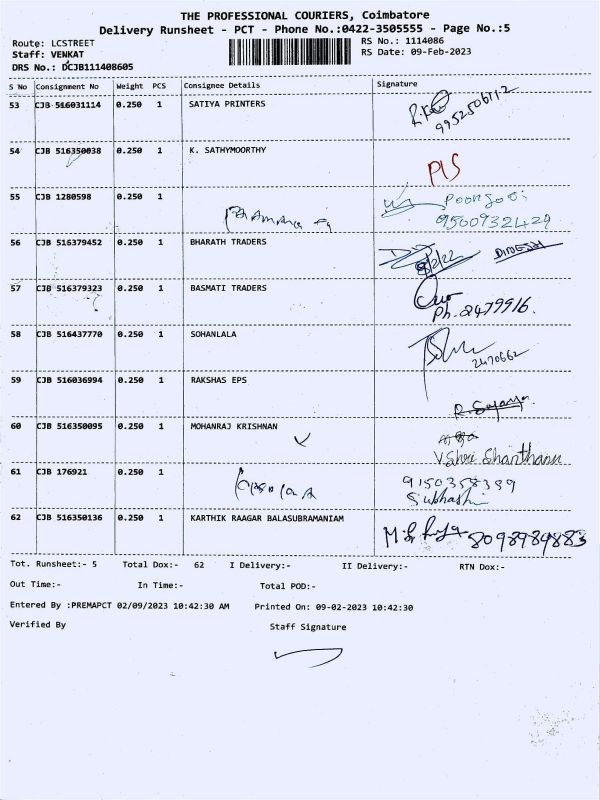 THE PROFESSIONAL COURIERS, Coimbatore
Delivery Runsheet - PCT - Phone No.:0422-3505555 - Page No.:5
Route: LCSTREET
Staff: VENKAT
DRS No.: DCJB111408605
RS No.: 1114086
RS Date: 09-Feb-2023
S No Consignment No Weight PCS Consignee Details Signature
53 CJB 516031114 0.250 1 SATIYA PRINTERS
54 CJB 516350038 0.250 1 K. SATHYMOORTHY
PLS
55 CJB 1280598 0.250 1
9500932429
56 CJB 516379452 0.250 1 BHARATH TRADERS
DINESH
57 CJB 516379323 0.250 1 BASMATI TRADERS
Ph. 2479916.
58 CJB 516437770 0.250 1 SOHANLALA
2470662
59 CJB 516036994 0.250 1 RAKSHAS EPS
60 CJB 516350095 0.250 1 MOHANRAJ KRISHNAN
V. Shri Shanthanu
61 CJB 176921 0.250 1
9150358399
Subhashi
62 CJB 516350136 0.250 1 KARTHIK RAAGAR BALASUBRAMANIAM
8098984883
Tot. Runsheet:- 5 Total Dox:- 62 I Delivery:- II Delivery:- RTN Dox:-
Out Time:- In Time:- Total POD:-
Entered By :PREMAPCT 02/09/2023 10:42:30 AM Printed On: 09-02-2023 10:42:30
Verified By Staff Signature